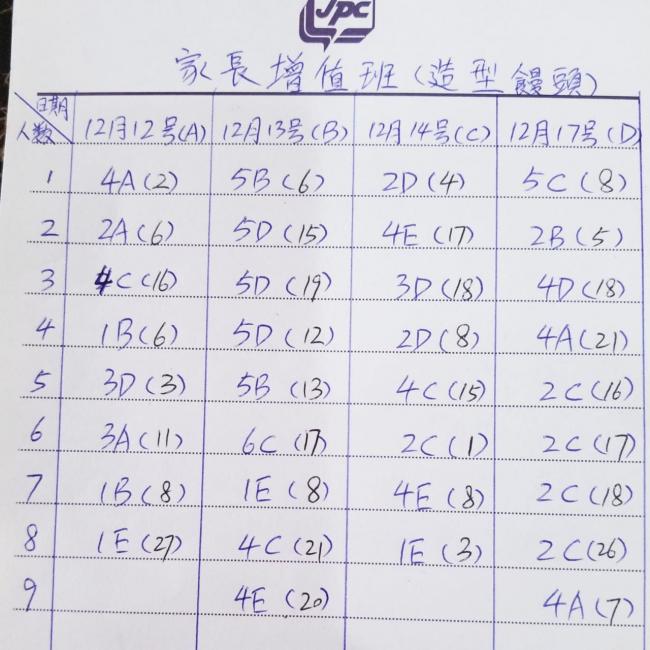 JPC
家長增值班(造型饅頭)
日期
人数 12月12号(A) 12月13号(B) 12月14号(C) 12月17号(D)
1 4A(2) 5B(6) 2D(4) 5C(8)
2 2A(6) 5D(15) 4E(17) 2B(5)
3 4C(16) 5D(19) 3D(18) 4D(18)
4 1B(6) 5D(12) 2D(8) 4A(21)
5 3D(3) 5B(13) 4C(15) 2C(16)
6 3A(11) 6C(17) 2C(1) 2C(17)
7 1B(8) 1E(8) 4E(8) 2C(18)
8 1E(27) 4C(21) 1E(3) 2C(26)
9 4E(20) 4A(7)